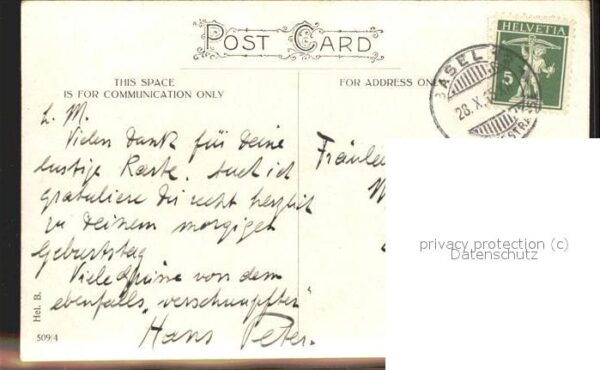 POST CARD
THIS SPACE
IS FOR COMMUNICATION ONLY
FOR ADDRESS ONLY
HELVETIA
5
BASEL
28.X.
L. M.
Vielen Dank für Deine
lustige Karte. Auch ich
gratuliere Dir recht herzlich
zu Deinem morgigen
Geburtstag
Viele Grüsse von dem
ebenfalls "verschnupften"
"Hans Peter.
Fräulein
M
privacy protection (c)
Datenschutz
Hel. B.
509/4